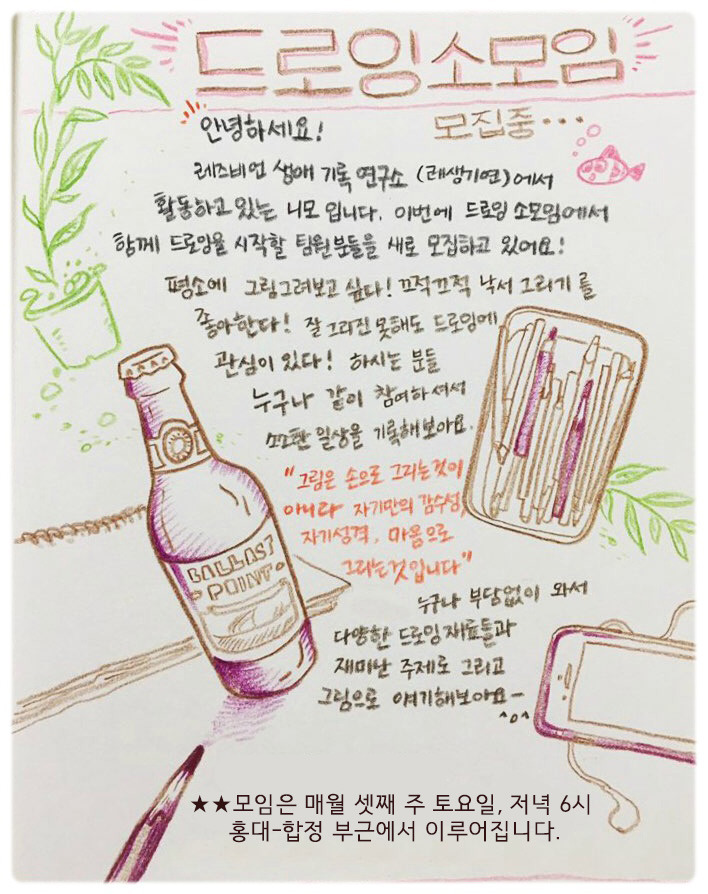 드로잉소모임
모집중...
안녕하세요!
레즈비언 생애 기록 연구소 (레생기연)에서
활동하고 있는 니모 입니다. 이번에 드로잉 소모임에서
함께 드로잉을 시작할 팀원분들을 새로 모집하고 있어요!
평소에 그림그려보고 싶다! 끄적끄적 낙서 그리기 를
좋아한다! 잘 그리진 못해도 드로잉에
관심이 있다! 하시는 분들
누구나 같이 참여하셔서
소소한 일상을 기록해보아요.
"그림은 손으로 그리는것이
아니라 자기만의 감수성,
자기성격, 마음으로
그리는것입니다"
BALLAST
POINT
누구나 부담없이 와서
다양한 드로잉재료들과
재미난 주제로 그리고
그림으로 얘기해보아요~
^o^
★★모임은 매월 셋째 주 토요일, 저녁 6시
홍대-합정 부근에서 이루어집니다.